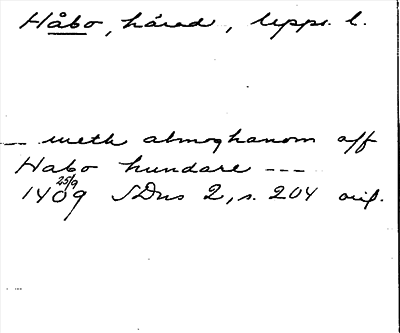 Håbo, härad, Upps. l.
-- meth almoghanom aff
Habo hundare ---
25/9
1409 SDns 2, s. 204 orig.